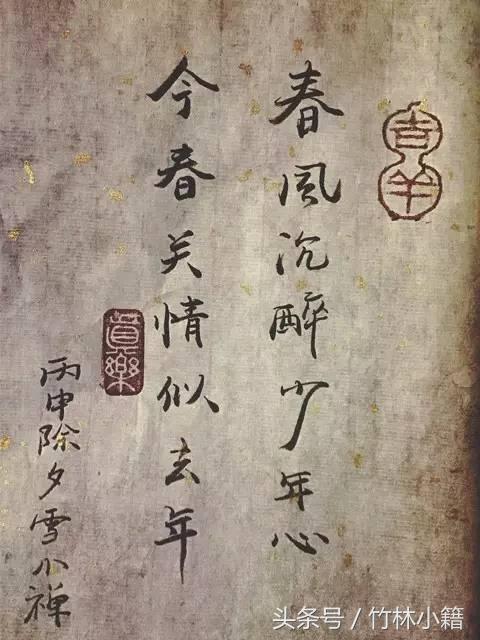 吉羊
春风沉醉少年心
今春关情似去年
丙申除夕雪小禅
头条号/竹林小籍